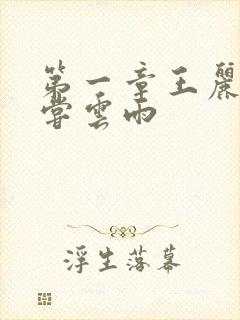 第一章王麗
嘗雲雨
浮生落幕